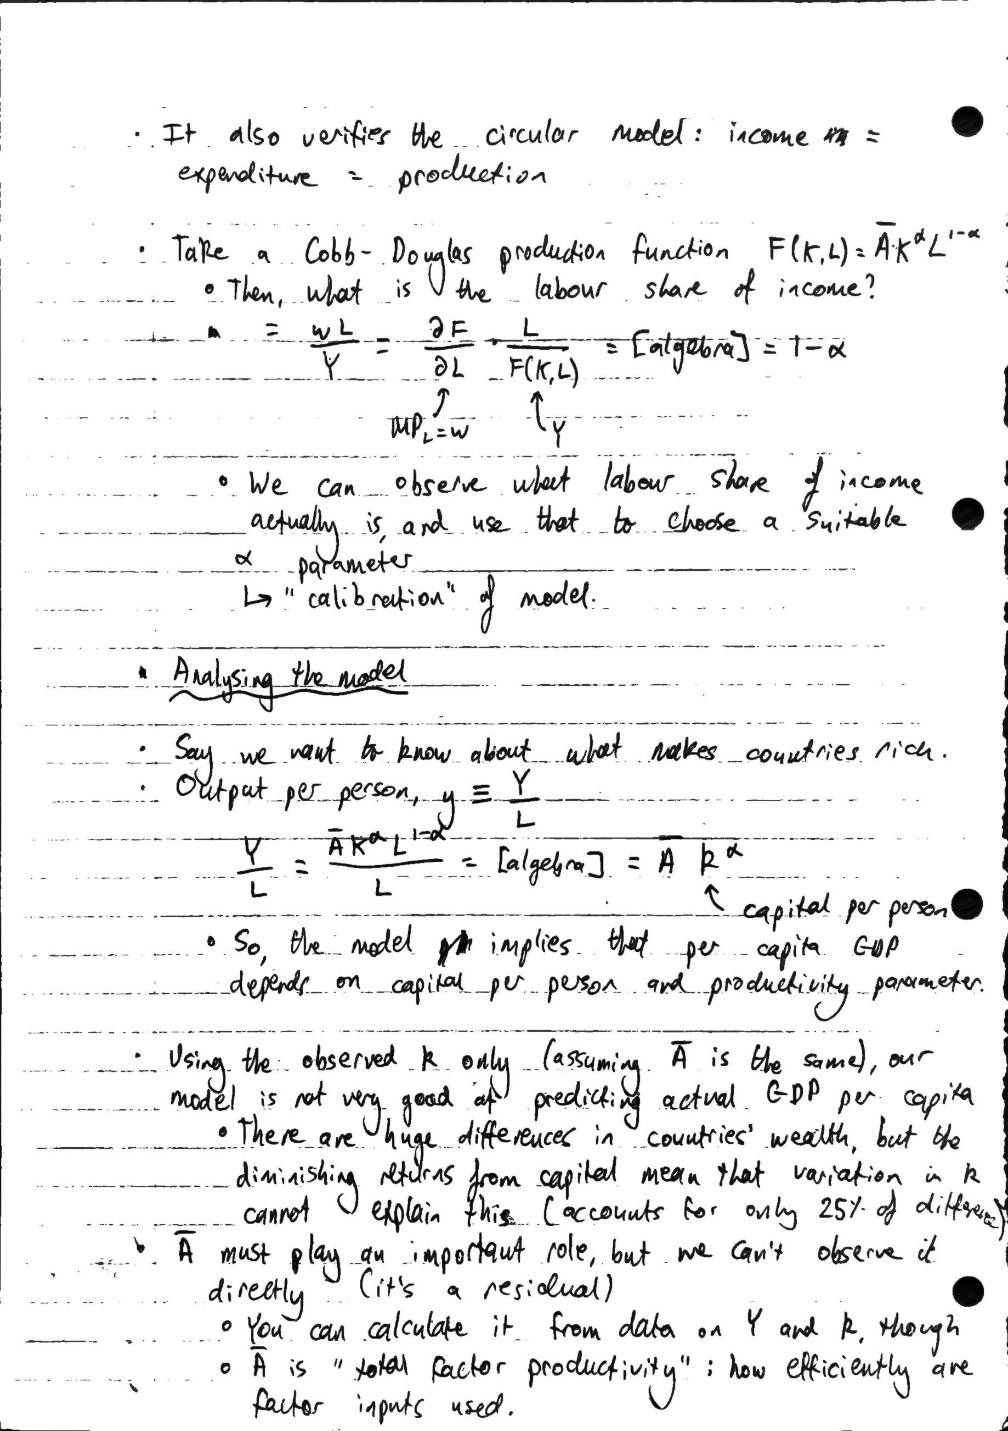 · It also verifies the circular model: income =
expenditure = production
· Take a Cobb-Douglas production function F(K,L) = Ā·K^α L^(1-α)
∘ Then, what is the labour share of income?
= wL/Y = ∂F/∂L · L/F(K,L) = [algebra] = 1-α
↑ MP_L = w ↑ Y
∘ We can observe what labour share of income
actually is, and use that to choose a suitable
α parameter
↳ "calibration" of model.
· Analysing the model
· Say we want to know about what makes countries rich.
· Output per person, y ≡ Y/L
Y/L = Ā K^α L^(1-α)/L = [algebra] = Ā k^α
↑ capital per person
∘ So, the model implies that per capita GDP
depends on capital per person and productivity parameter.
· Using the observed k only (assuming Ā is the same), our
model is not very good at predicting actual GDP per capita
∘ There are huge differences in countries' wealth, but the
diminishing returns from capital mean that variation in k
cannot explain this (accounts for only 25% of difference)
· Ā must play an important role, but we can't observe it
directly (it's a residual)
∘ You can calculate it from data on Y and k, though
∘ Ā is "total factor productivity": how efficiently are
factor inputs used.